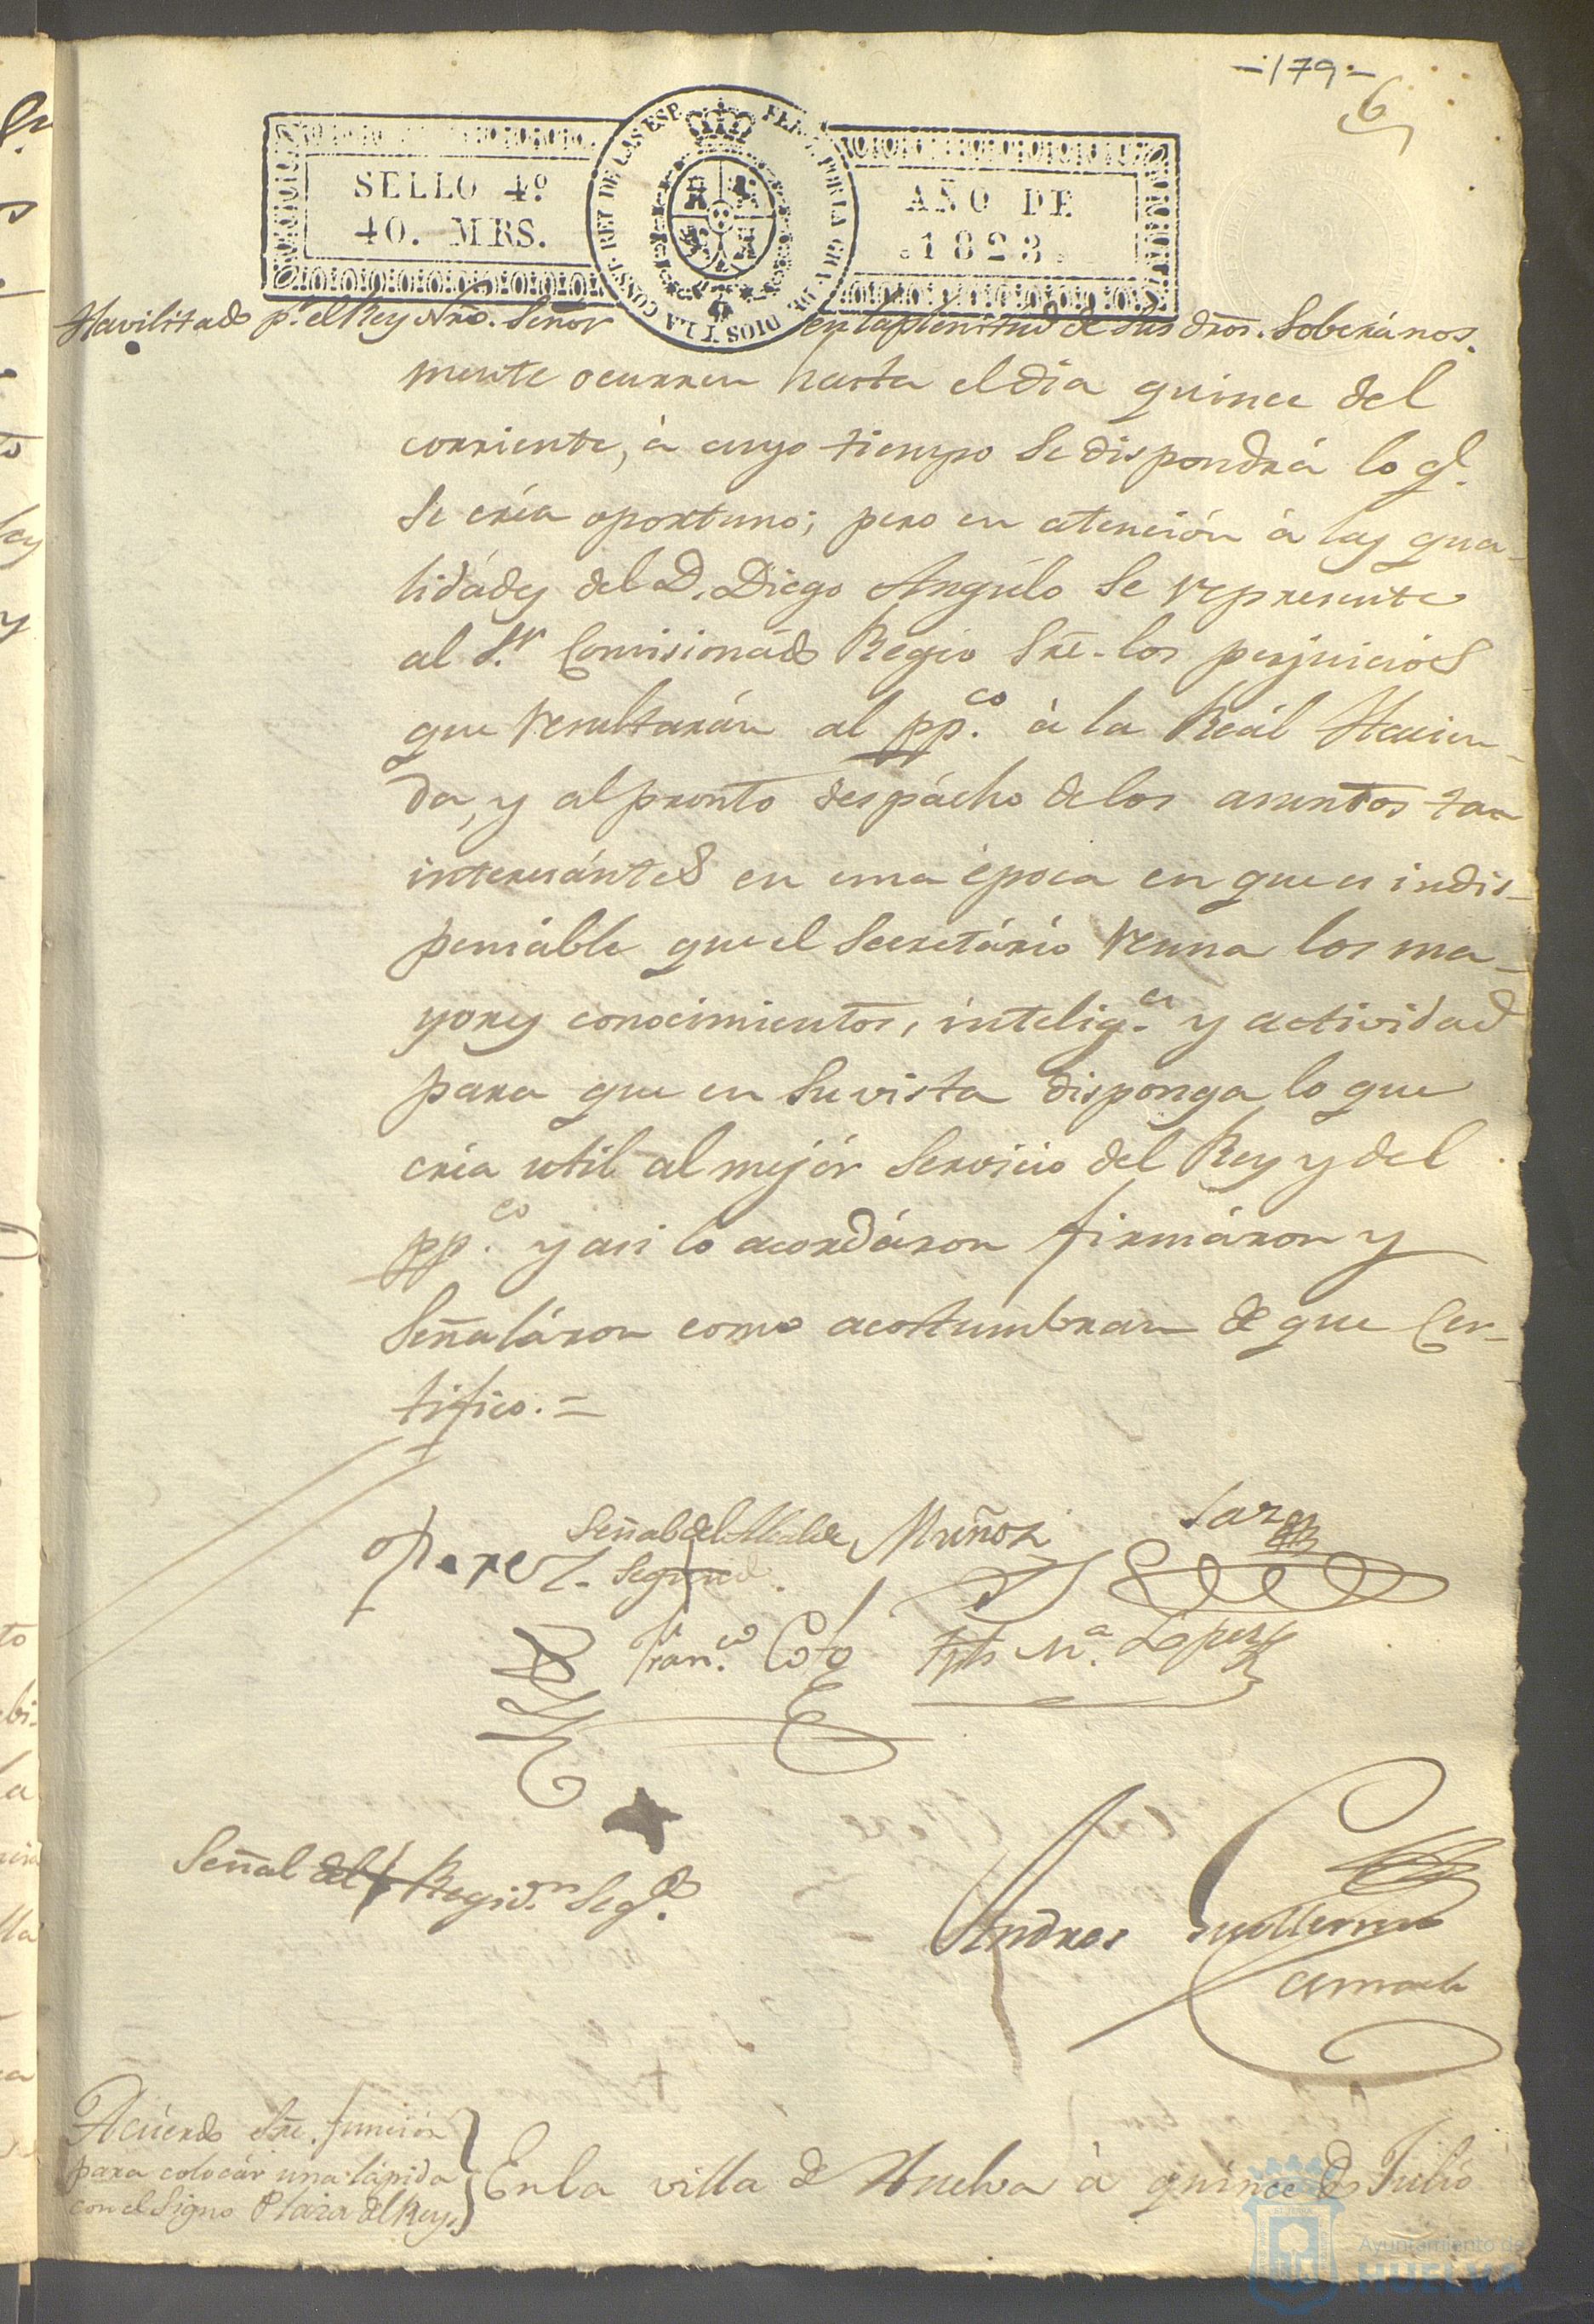 -179-
6
SELLO 4º
40. MRS.
AÑO DE
1823.
FERN. 7 POR LA GRA. DE DIOS Y LA CONST. REY DE LAS ESP.
Havilitado pr. el Rey Nro. Señor en la plenitud de sus dros. Soberános.
mente ocurren hasta el dia quince del
corriente, à cuyo tiempo se dispondrá lo ql.
se créa oportuno; pero en atención à las qua-
lidádes del D. Diego Angúlo se represente
al Sr. Comisionádo Regio Sre. los perjuicios
que resultarán al ppco. à la Reál Hacien-
da, y al pronto despácho de los asuntos tan
interesántes en una época en que es indis-
pensáble que el Secretário reuna los ma-
yores conocimientos, inteliga. y actividad
para que en su vista disponga lo que
créa util al mejór Servicio del Rey y del
ppco. y asi lo acordáron firmáron y
Señaláron como acostumbran de que Cer-
tifico. =
Perez. Señal del Alcalde Muñoz
Segundo.
Franco. Coto
Ma. Lopez
Señal del Regidr. Segdo.
Andres Guillermo
Camacho
Acúerdo Sre. función
para colocár una lápida
con el Signo Plaza del Rey.
En la villa de Huelva à quince de Julio
Ayuntamiento de
HUELVA